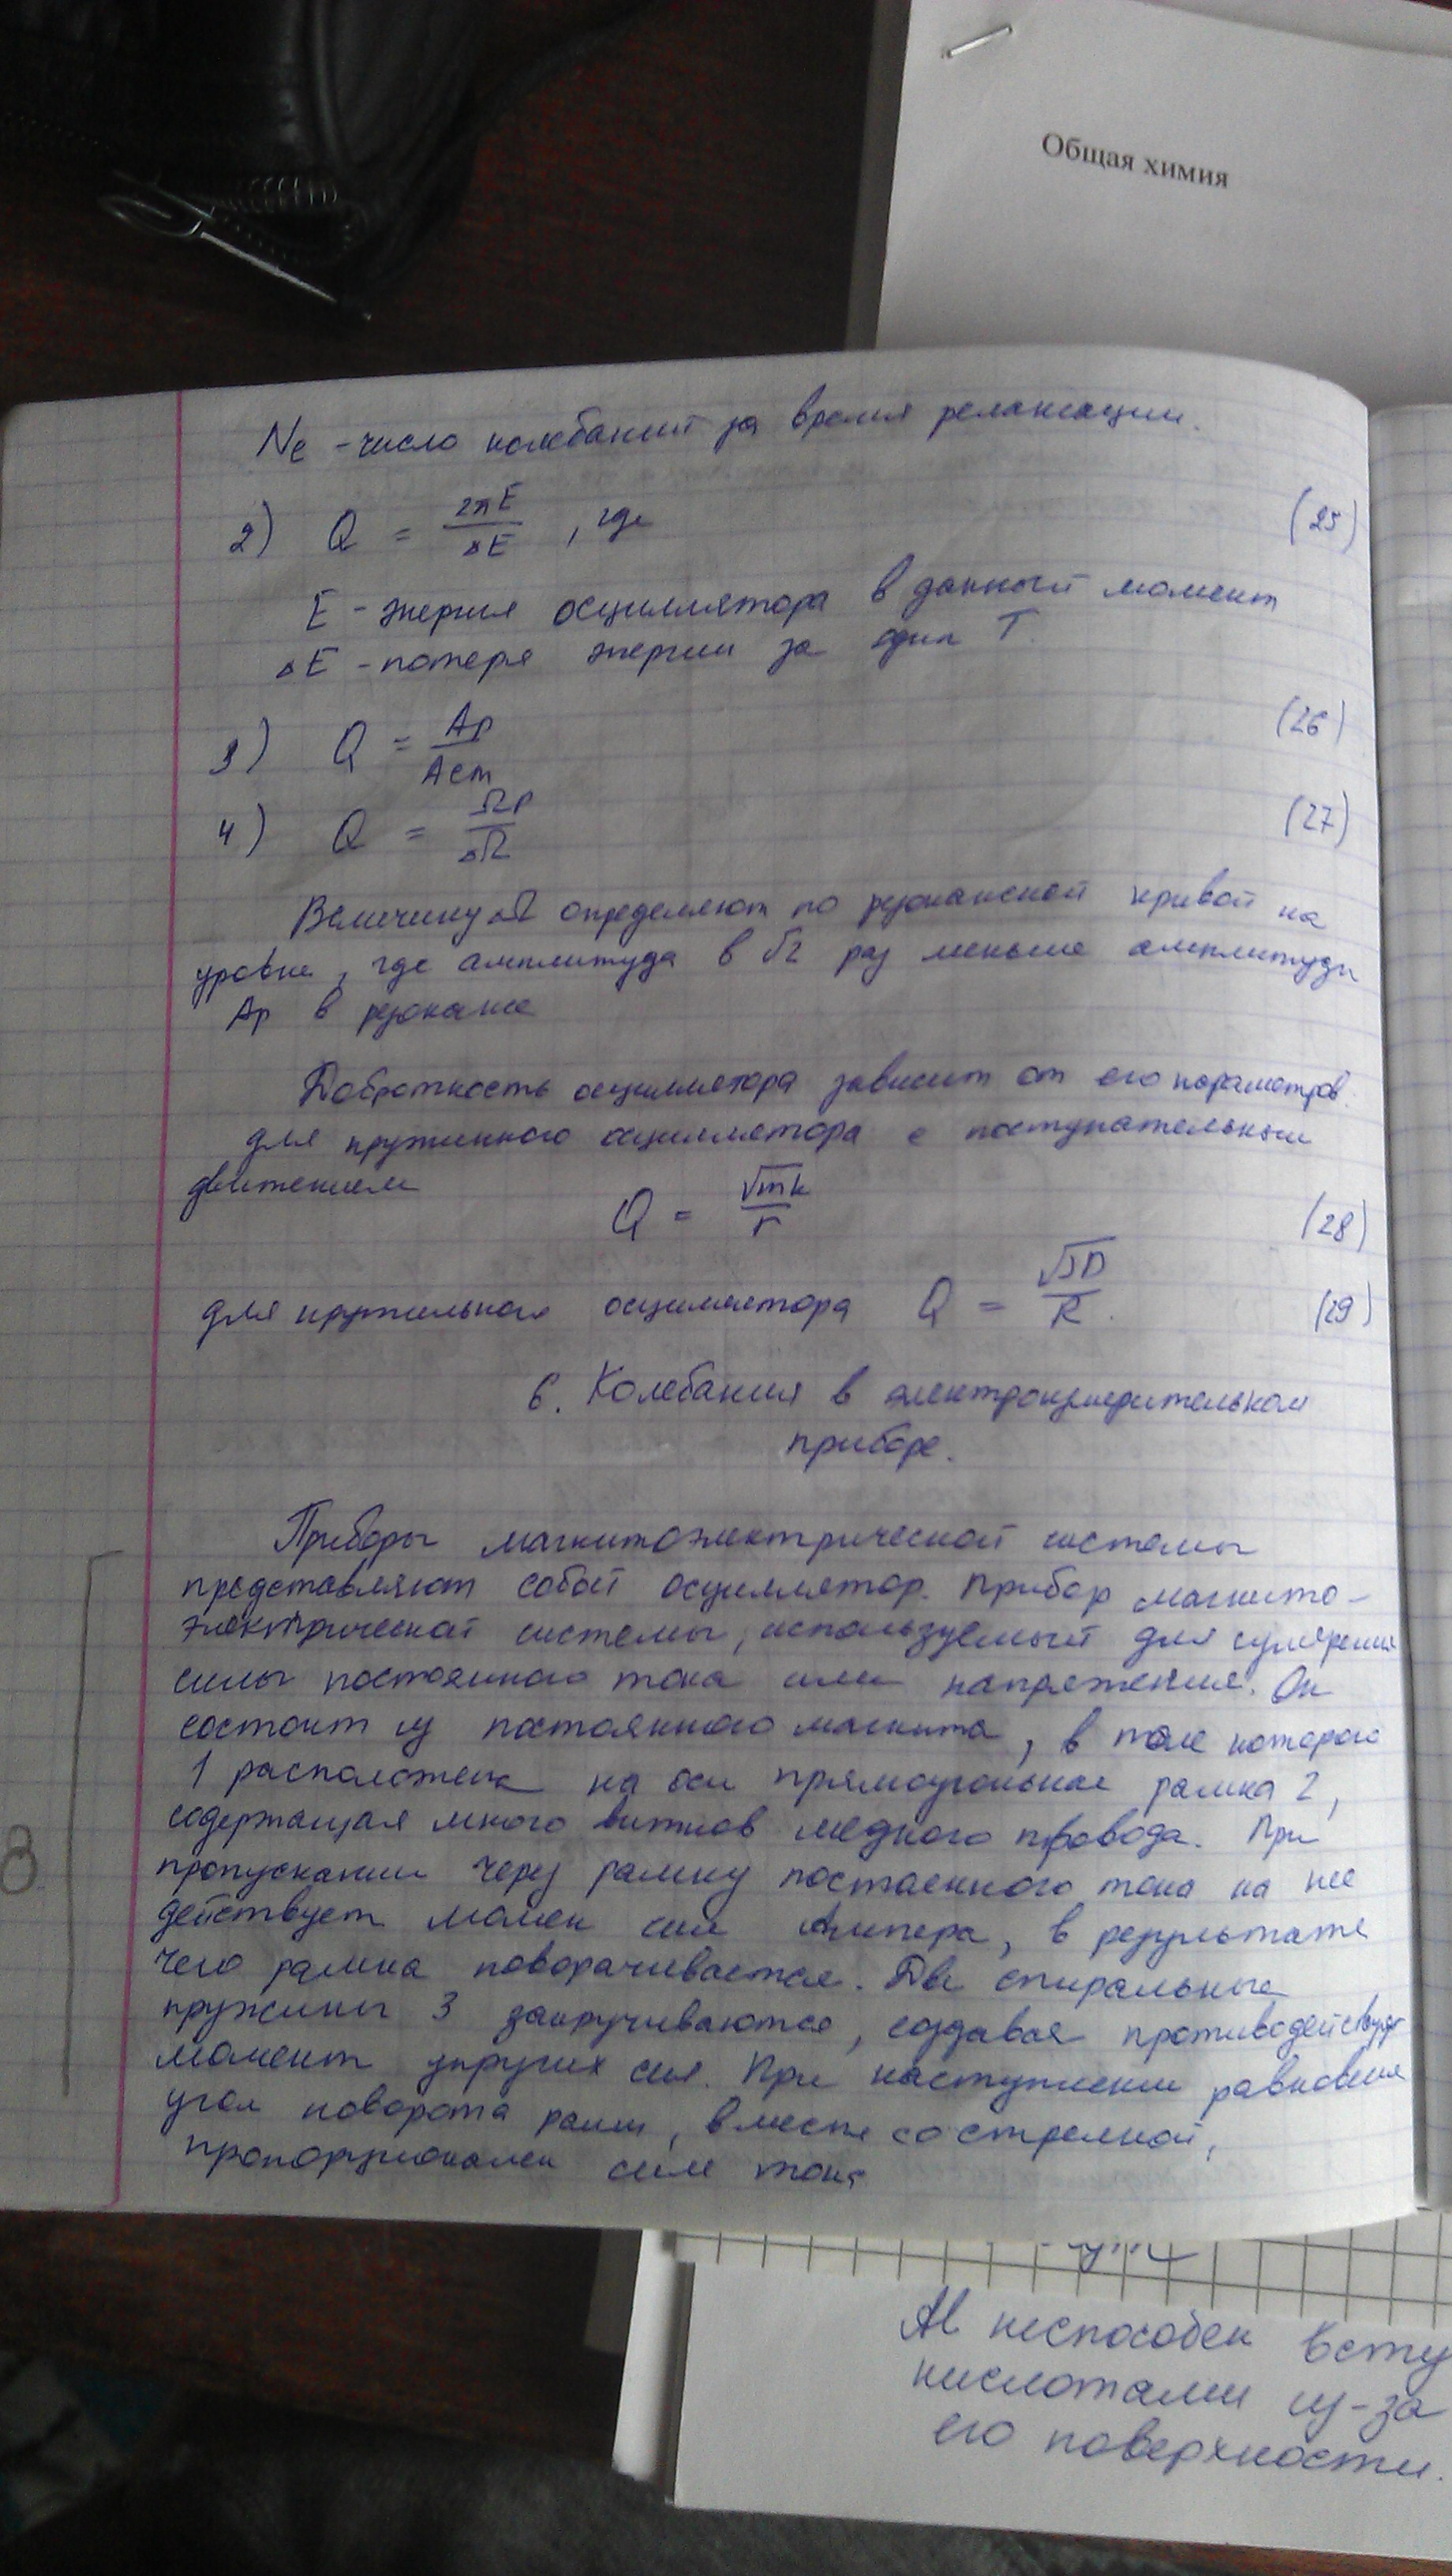 Общая химия
Ne - число колебаний за время релаксации.
2) Q = 2πE / ΔE , где (25)
E - энергия осциллятора в данный момент
ΔE - потеря энергии за один T.
3) Q = Aр / Aст (26)
4) Q = Ωр / ΔΩ (27)
Величину ΔΩ определяют по резонансной кривой на
уровне, где амплитуда в √2 раз меньше амплитуды
Aр в резонансе
Добротность осциллятора зависит от его параметров.
для пружинного осциллятора с поступательным
движением
Q = √mk / r (28)
для крутильного осциллятора Q = √JD / R. (29)
6. Колебания в электроизмерительном
приборе.
Приборы магнитоэлектрической системы
представляют собой осциллятор. Прибор магнито-
электрической системы, используемый для измерения
силы постоянного тока или напряжения. Он
состоит из постоянного магнита, в поле которого
1 расположена на оси прямоугольная рамка 2,
содержащая много витков медного провода. При
пропускании через рамку постоянного тока на нее
действует момен сил Ампера, в результате
чего рамка поворачивается. Две спиральные
пружины 3 закручиваются, создавая противодейству
момент упругих сил. При наступлении равновесия
угол поворота рамки, вместе со стрелкой,
пропорционален силе тока
8
Al неспособен всту
кислотами из-за
его поверхности.